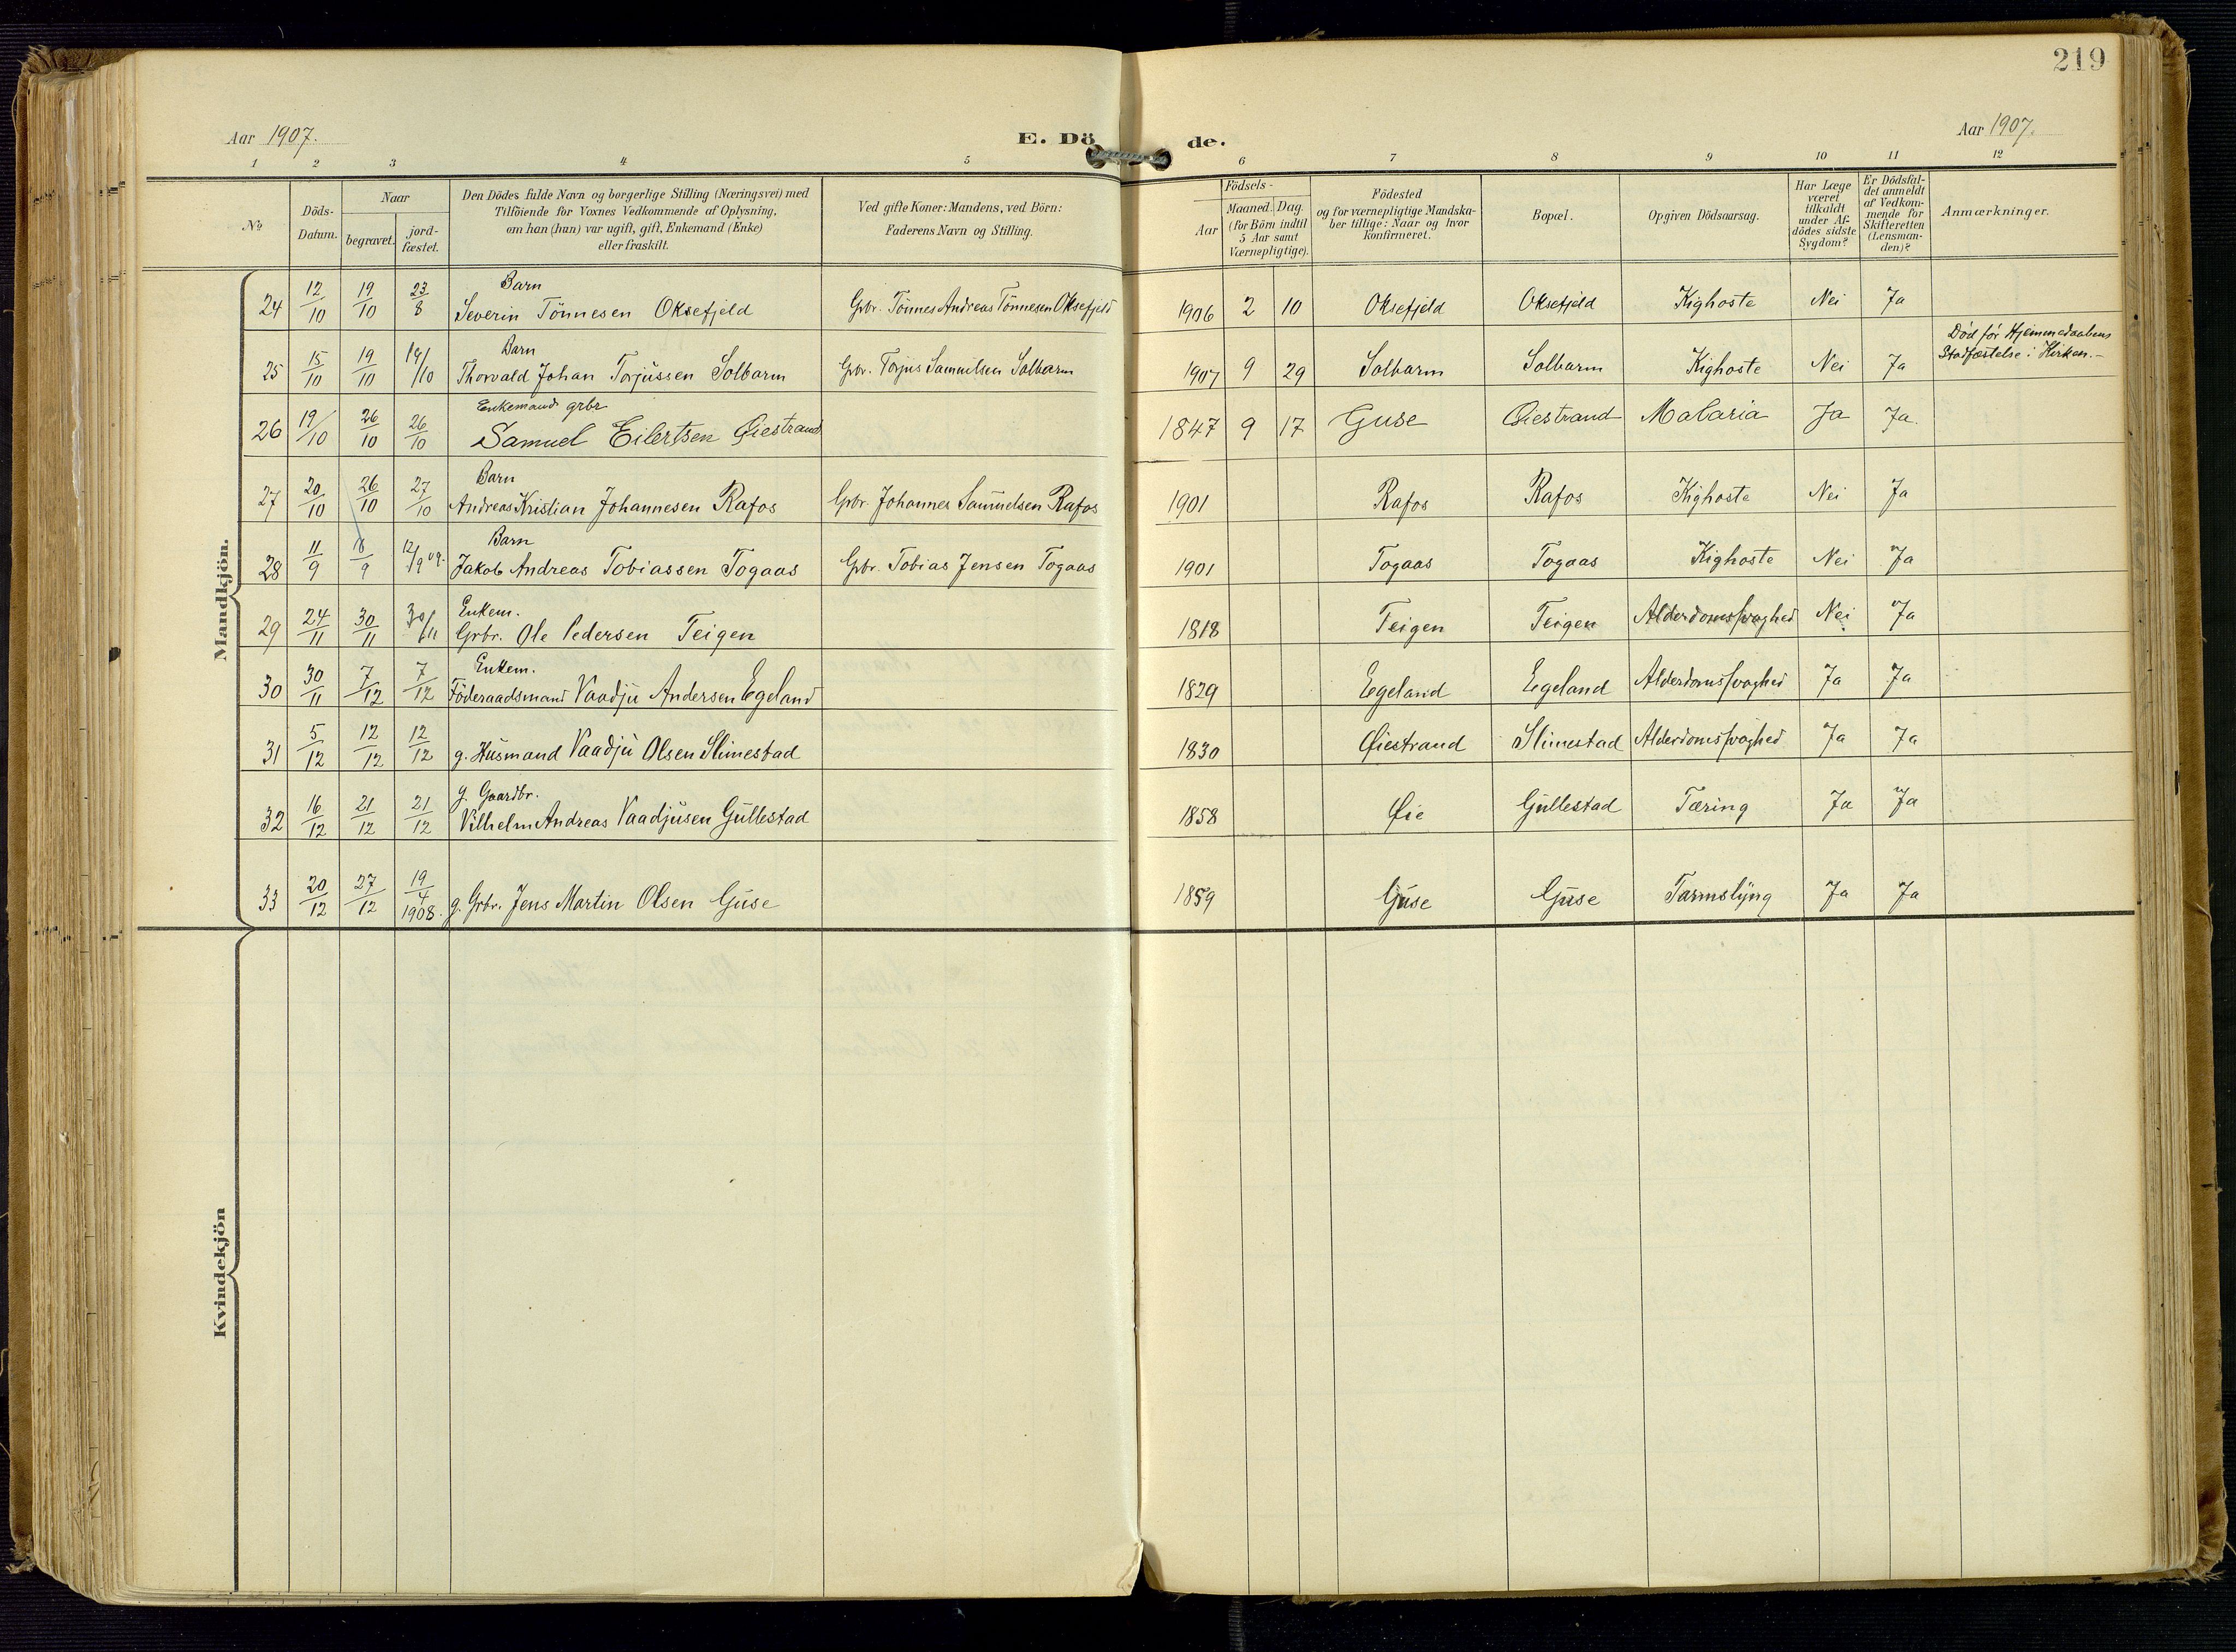 219
Aar 1907.
E. Dö de.
Aar 1907.
1 2 3 4 5 6 7 8 9 10 11 12
№
Döds-Datum.
Naar
begravet.
jord-fæstet.
Den Dödes fulde Navn og borgerlige Stilling (Næringsvei) med
Tilföiende for Voxnes Vedkommende af Oplysning,
om han (hun) var ugift, gift, Enkemand (Enke)
eller fraskilt.
Ved gifte Koner: Mandens, ved Börn:
Faderens Navn og Stilling.
Födsels-
Aar
Maaned. Dag.
(for Börn indtil
5 Aar samt
Værnepligtige).
Födested
og for værnepligtige Mandska-
ber tillige: Naar og hvor
konfirmeret.
Bopæl.
Opgiven Dödsaarsag.
Har Læge
været
tilkaldt
under Af-
dödes sidste
Sygdom?
Er Dödsfal-
det anmeldt
af Vedkom-
mende for
Skifteretten
(Lensman-
den)?
Anmærkninger.
Mandkjön.
Barn
24 12/10 19/10 23/8 Severin Tönnesen Oksefjeld Gbr. Tönnes Andreas Tönnesen Oksefjeld 1906 2 10 Oksefjeld Oksefjeld Kighoste Nei Ja
Barn
Död för Hjemmedaabens
Stadfæstelse i Kirken.-
25 15/10 19/10 19/10 Thorvald Johan Torjussen Solbarm Gbr. Torjus Samuelsen Solbarm 1907 9 29 Solbarm Solbarm Kighoste Nei Ja
Enkemand grbr
26 19/10 26/10 26/10 Samuel Eilertsen Øiestrand 1847 9 17 Guse Øiestrand Malaria Ja Ja.
Barn
27 20/10 26/10 27/10 Andreas Kristian Johannesen Rafos Gbr. Johannes Samuelsen Rafos 1901 Rafos Rafos Kighoste Nei Ja
Barn
28 11/9 /9 12/9 Jakob Andreas Tobiassen Togaas Gbr. Tobias Jensen Togaas 1901 Togaas Togaas Kighoste Nei Ja
Enkem.
29 24/11 30/11 30/11 Grbr. Ole Pedersen Teigen 1818 Teigen Teigen Alderdomssvaghed Nei Ja
Enkem.
30 30/11 7/12 7/12 Föderaadsmand Vaadju Andersen Egeland 1829 Egeland Egeland Alderdomssvaghed Ja Ja
31 5/12 12/12 12/12 g. Husmand Vaadju Olsen Slimestad 1830 Øiestrand Slimestad Alderdomssvaghed Ja Ja
g. Gaardbr.
32 16/12 21/12 21/12 Vilhelm Andreas Vaadjusen Gullestad 1858 Øie Gullestad Tæring Ja Ja
33 20/12 27/12 19/4 1908. g. Grbr. Jens Martin Olsen Guse 1859 Guse Guse Tarmslyng Ja Ja
Kvindekjön